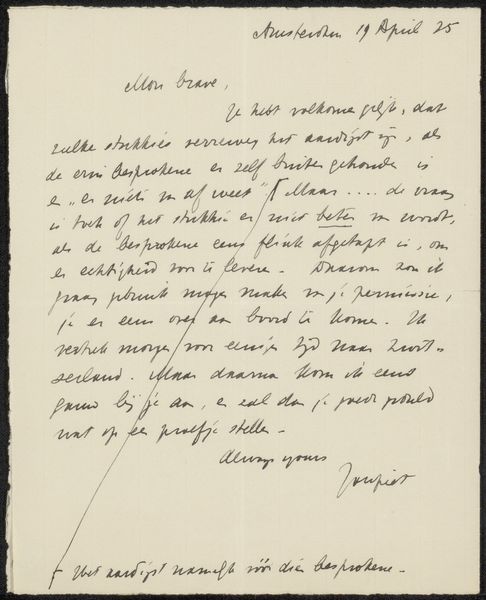 Amsterdam 19 April 25
Mon brave,
Je hebt volkomen gelijk, dat
zulke stukkies verreweg het aardigst zijn, als
de erin besprokene er zelf buiten gehouden is
en "er niets van af weet" † Maar .... de vraag
is toch of het stukkie er niet beter van wordt,
als de besprokene eens flink afgetapt is, om
er echtigheid voor te leveren - Daarom zou ik
graag gebruik mogen maken van je permissie,
je er eens over aan boord te komen. Ik
vertrek morgen voor eenigen tijd naar Zwit-
serland. Maar daarna kom ik eens
gauw bij je aan, en zal dan je goede
wat op een proefje stellen -
Always yours
Janpiet
† Het aardigst namelijk vóór dien besprokene -